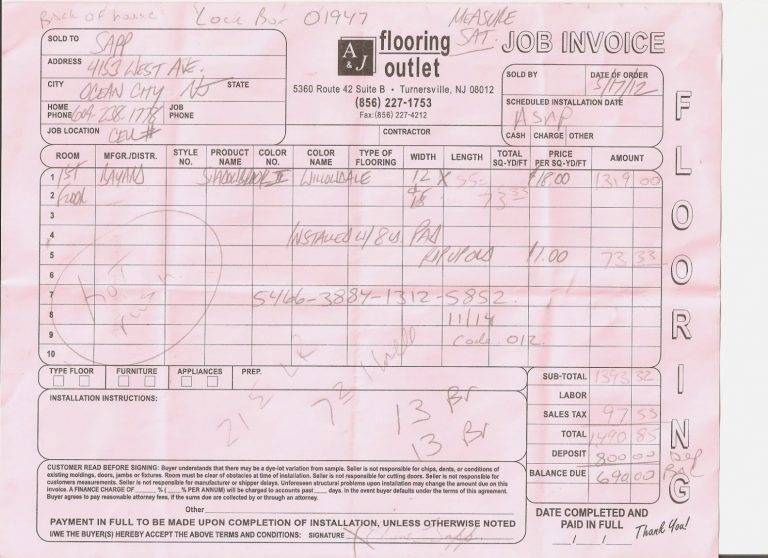 Back of house Lock Box MEASURE SAT.
A & J flooring outlet
JOB INVOICE
FLOORING
5360 Route 42 Suite B • Turnersville, NJ 08012
(856) 227-1753
Fax: (856) 227-4212
SOLD TO SAPP
ADDRESS 4153 WEST AVE.
CITY OCEAN CITY STATE NJ
HOME PHONE JOB PHONE
JOB LOCATION CELL #
CONTRACTOR
SOLD BY DATE OF ORDER 5/17/12
SCHEDULED INSTALLATION DATE
ASAP
CASH CHARGE OTHER
ROOM MFGR./DISTR. STYLE NO. PRODUCT NAME COLOR NO. COLOR NAME TYPE OF FLOORING WIDTH LENGTH TOTAL SQ-YD/FT PRICE PER SQ-YD/FT AMOUNT
1 1ST WILLOWDALE 12 X $18.00 1319 00
2 FLOOR 73 33
3
4 INSTALLED W/ 8 LB PAD
5 RIP UP OLD $1.00 73 33
6
7
8
9
10
TYPE FLOOR FURNITURE APPLIANCES PREP.
INSTALLATION INSTRUCTIONS:
13 Br
13 Br
SUB-TOTAL 1393 32
LABOR
SALES TAX 97 53
TOTAL 1490 85
DEPOSIT 800 00 Dep
BALANCE DUE 690 00 BAL
CUSTOMER READ BEFORE SIGNING: Buyer understands that there may be a dye-lot variation from sample. Seller is not responsible for chips, dents, or conditions of
existing moldings, doors, jambs or fixtures. Room must be clear of obstacles at time of installation. Seller is not responsible for cutting doors. Seller is not responsible for
customers measurements. Seller is not responsible for manufacturer or shipper delays. Unforeseen structural problems upon installation may change the amount due on this
invoice. A FINANCE CHARGE OF ______ % ( ___ % PER ANNUM) will be charged to accounts past ____ days. in the event buyer defaults under the terms of this agreement.
Buyer agrees to pay reasonable attorney fees, if the sums due are collected by or through an attorney.
Other
PAYMENT IN FULL TO BE MADE UPON COMPLETION OF INSTALLATION, UNLESS OTHERWISE NOTED
I/WE THE BUYER(S) HEREBY ACCEPT THE ABOVE TERMS AND CONDITIONS: SIGNATURE X
DATE COMPLETED AND PAID IN FULL
/ /
Thank You!